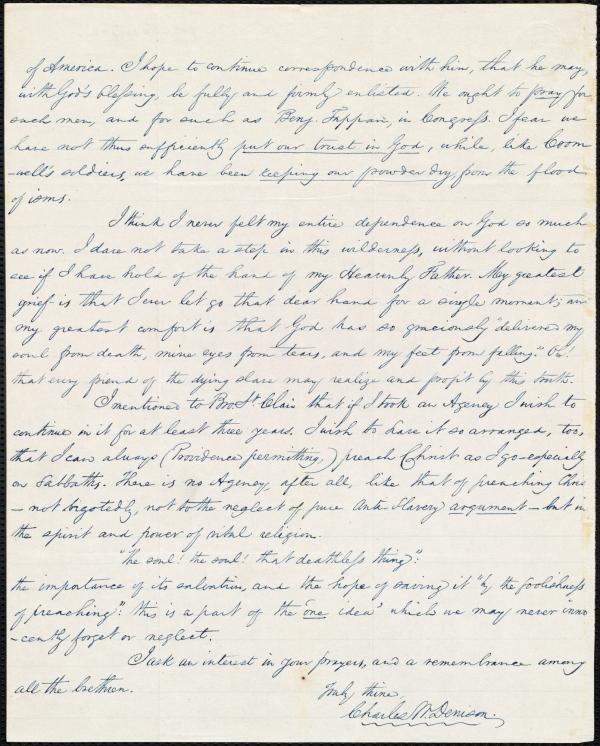 of America. I hope to continue correspondence with him, that he may,
with God's blessing, be fully and firmly enlisted. We ought to pray for
such men, and for such as Benj. Tappan, in Congress. I fear we
have not thus sufficiently put our trust in God, while, like Crom
-well's soldiers, we have been keeping our powder dry, from the flood
of isms.
I think I never felt my entire dependence on God so much
as now. I dare not take a step in this wilderness, without looking to
see if I have hold of the hand of my Heavenly Father. My greatest
grief is that I ever let go that dear hand for a single moment; and
my greatest comfort is that God has so graciously "delivered my
soul from death, mine eyes from tears, and my feet from falling." Oh!
that every friend of the dying slave may realize and profit by this truth.
I mentioned to Bro. St. Clair that if I took an Agency I wish to
continue in it for at least three years. I wish to have it so arranged, too,
that I can always (Providence permitting,) preach Christ as I go - especially
on Sabbaths. There is no Agency, after all, like that of preaching Chris
- not bigotedly, not to the neglect of pure Anti-Slavery argument - but in
the spirit and power of vital religion.
"The soul! the soul! that deathless thing":
the importance of its salvation, and the hope of saving it "by the foolishness
of preaching": this is a part of the 'one idea' which we may never inno
-cently forget or neglect.
I ask an interest in your prayers, and a remembrance among
all the brethren.
Truly thine,
Charles W. Denison.